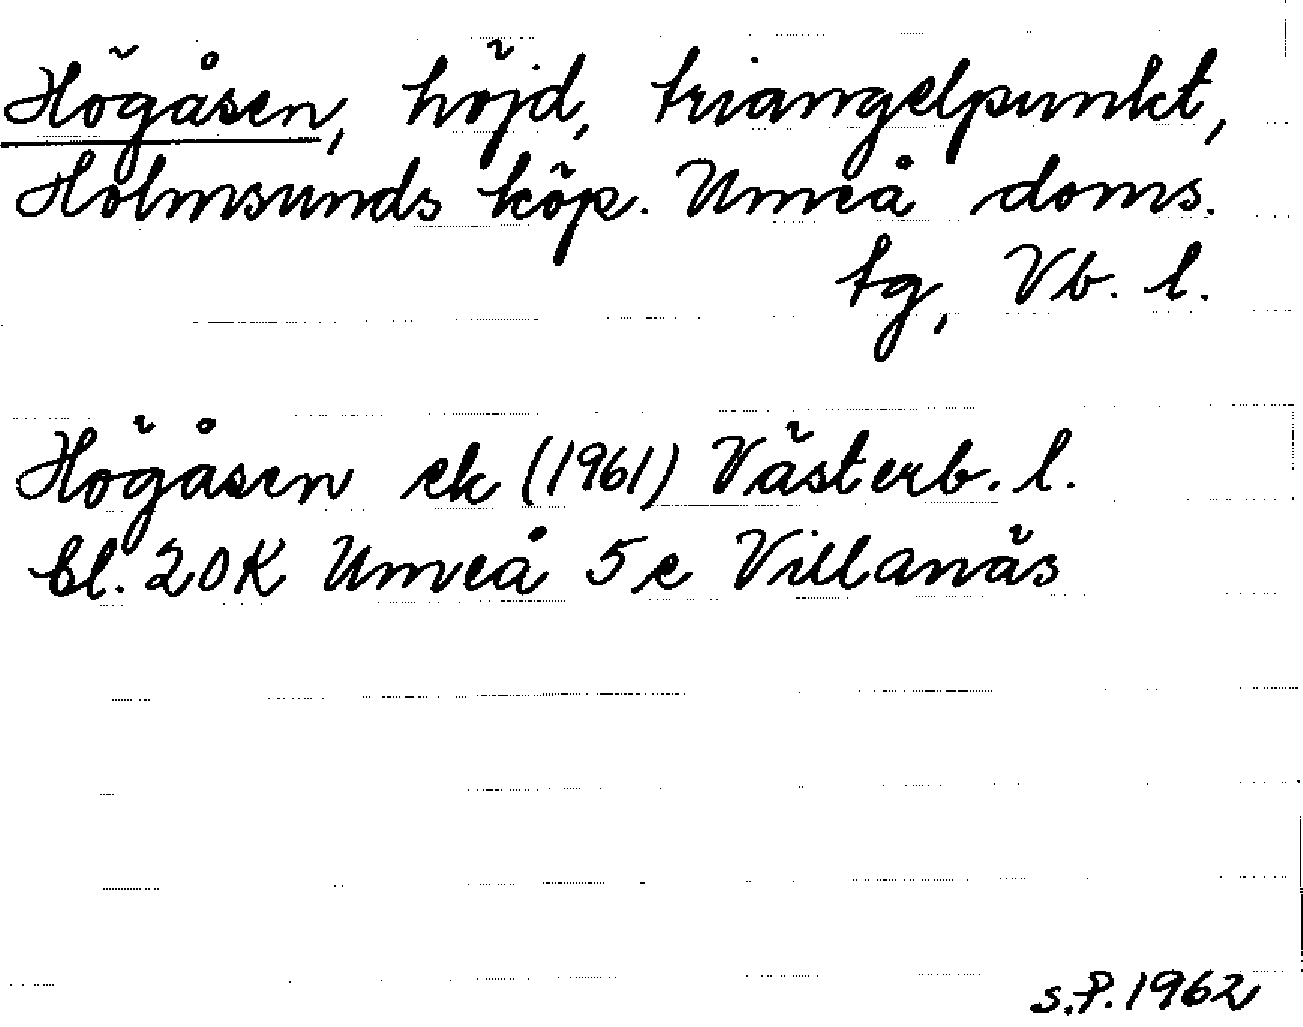 Högåsen, höjd, triangelpunkt,
Holmsunds köp. Umeå doms.
tg, Vb. l.
Högåsen ek (1961) Västerb. l.
bl. 20K Umeå 5e Villanäs
S.P. 1962